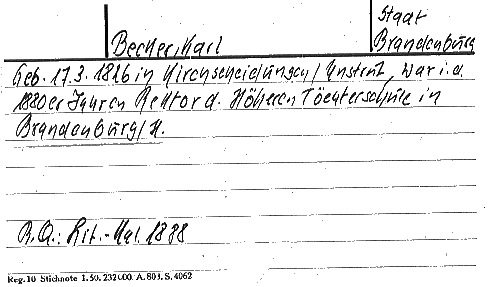 Stadt
Becker, Karl Brandenburg
Geb. 17.3.1816 in Kirchscheidungen/Unstrut, war i.d.
1880er Jahren Rektor d. Höheren Töchterschule in
Brandenburg/H.
B.Q.: Lit.-Kal. 1888
Reg. 10 Stichnote 1. 50. 232000. A. 803. S. 4062